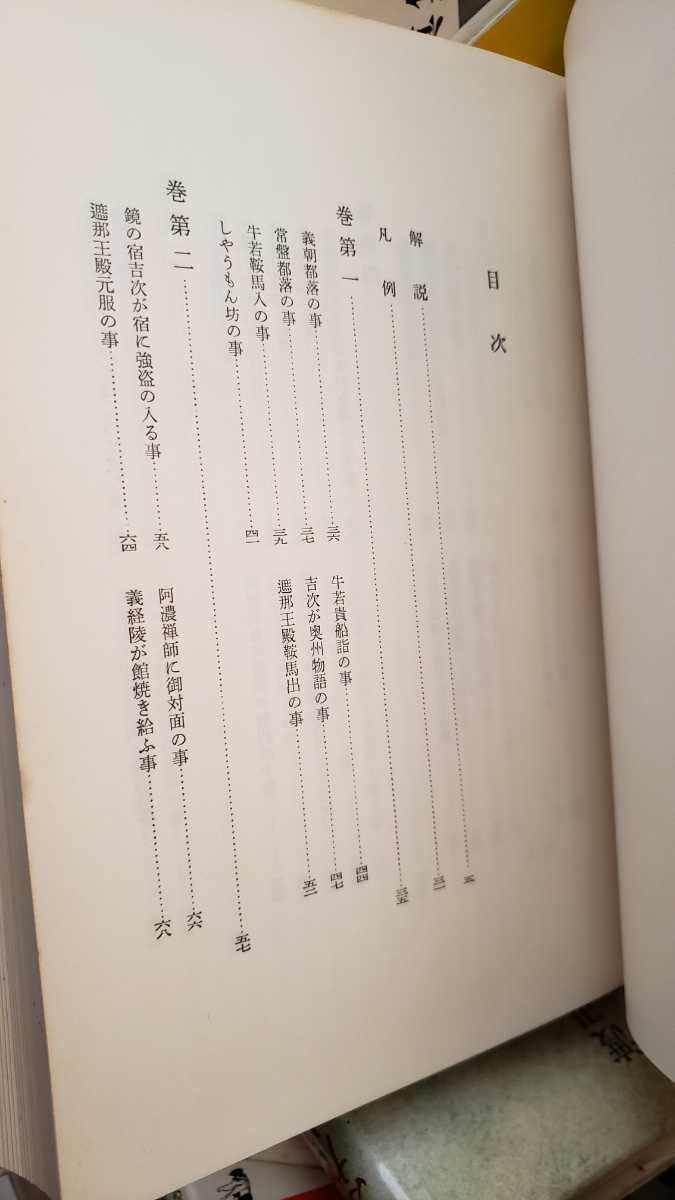 目次
解説……五
凡例……三一
巻第一……三五
義朝都落の事……三六
常盤都落の事……三七
牛若鞍馬入の事……三九
しやうもん坊の事……四一
牛若貴船詣の事……四四
吉次が奥州物語の事……四七
遮那王殿鞍馬出の事……五二
巻第二……五七
鏡の宿吉次が宿に強盗の入る事……五八
遮那王殿元服の事……六四
阿濃禅師に御対面の事……六六
義経陵が館焼き給ふ事……六八